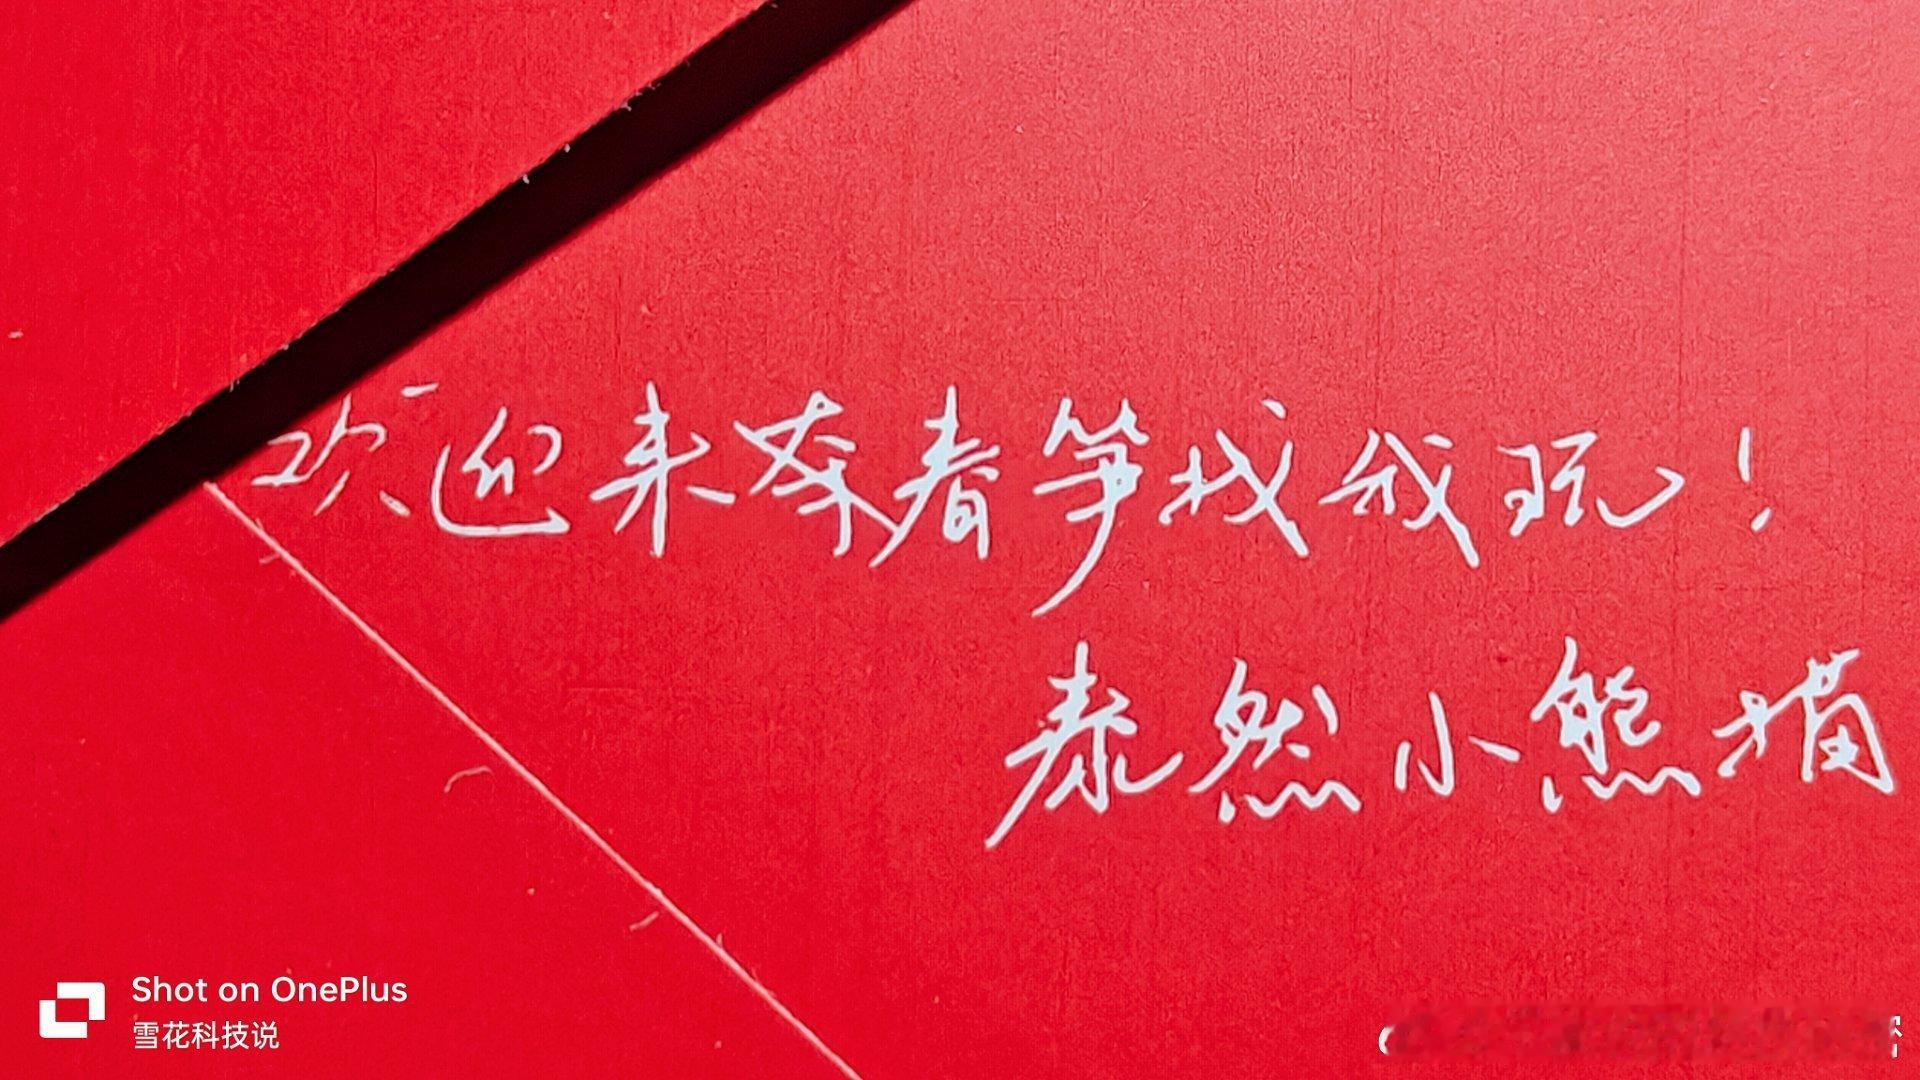 欢迎来奉春笋找我玩！
泰然小熊猫
Shot on OnePlus
雪花科技说